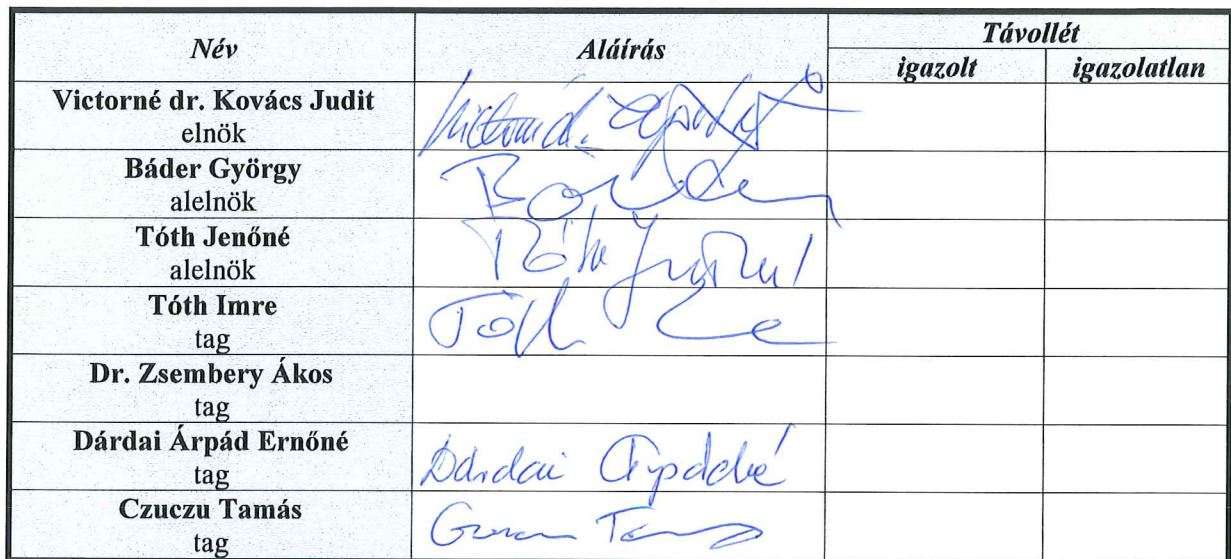 Név Aláírás Távollét
igazolt igazolatlan
Victorné dr. Kovács Judit
elnök
Báder György
alelnök
Tóth Jenőné
alelnök
Tóth Imre
tag
Dr. Zsembery Ákos
tag
Dárdai Árpád Ernőné
tag
Dárdai Árpádné
Czuczu Tamás
tag